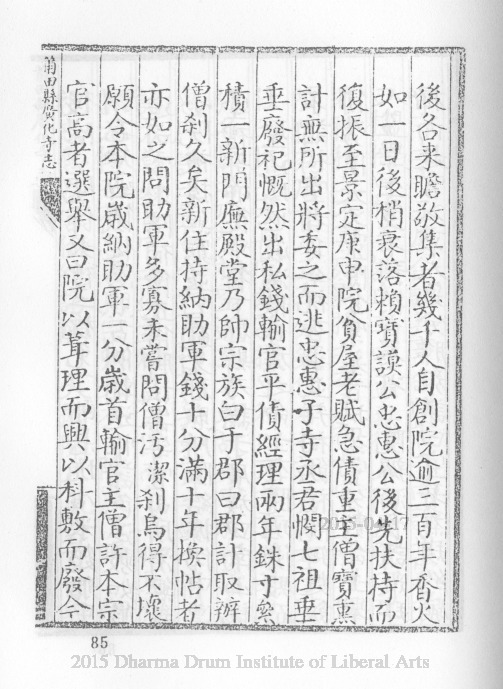 後各來瞻敬集者幾千人自創院逾三百年香火
如一日後稍衰落賴寶謨公忠惠公後先扶持而
復振至景定庚申院負屋老賦急債重主僧寶熏
計無所出將委之而逃忠惠子寺丞君憫七祖垂
垂廢祀慨然出私錢輸官平債經理兩年銖寸粲
積一新門廡殿堂乃帥宗族曰于郡曰郡計取辦
僧剎久矣新住持納助軍錢十分滿十年換帖者
亦如之問助軍多寡未嘗問僧汚潔剎烏得不壞
願令本院歲納助軍一分歲首輸官主僧許本宗
官高者選舉又曰院以葺理而興以科敷而廢今
莆田縣廣化寺志
85
2015-04-17
2015 Dharma Drum Institute of Liberal Arts